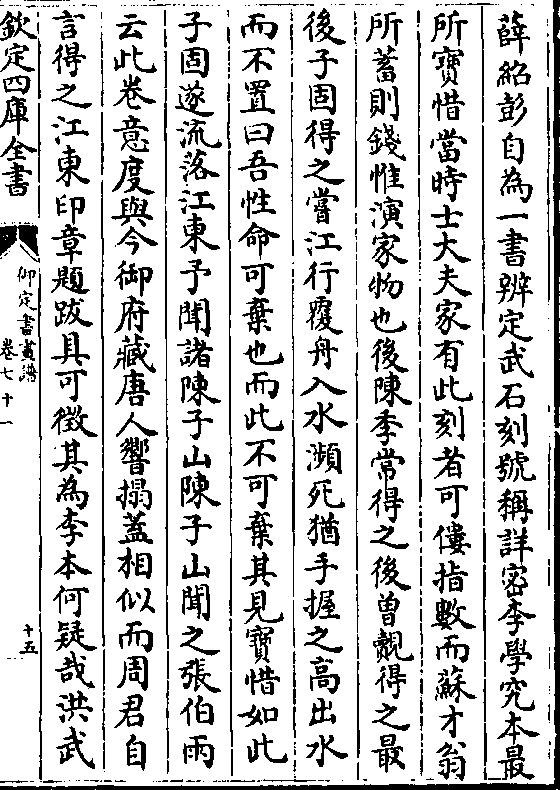 薛紹彭自為一書辨定武石刻號稱詳密李學究本最
所寶惜當時士大夫家有此刻者可僂指數而蘇才翁
所蓄則錢惟演家物也後陳季常得之後曽覿得之最
後子固得之嘗江行覆舟入水瀕死猶手握之高出水
而不置曰吾性命可棄也而此不可棄其見寳惜如此
子固遂流落江東予聞諸陳子山陳子山聞之張伯雨
云此卷意度與今御府藏唐人響搨葢相似而周君自
言得之江東印章題跋具可徵其為李本何疑哉洪武
欽定四庫全書
御定書畫譜
卷七十一
十五